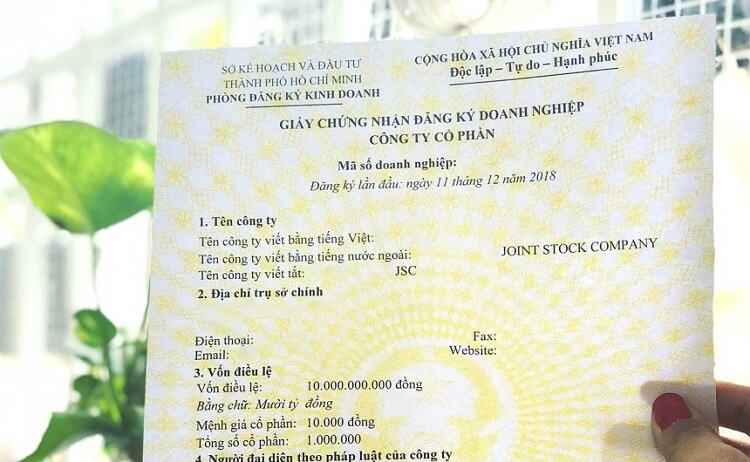 SỞ KẾ HOẠCH VÀ ĐẦU TƯ
THÀNH PHỐ HỒ CHÍ MINH
PHÒNG ĐĂNG KÝ KINH DOANH
CỘNG HÒA XÃ HỘI CHỦ NGHĨA VIỆT NAM
Độc lập – Tự do – Hạnh phúc
GIẤY CHỨNG NHẬN ĐĂNG KÝ DOANH NGHIỆP
CÔNG TY CỔ PHẦN
Mã số doanh nghiệp:
Đăng ký lần đầu: ngày 11 tháng 12 năm 2018
1. Tên công ty
Tên công ty viết bằng tiếng Việt:
Tên công ty viết bằng tiếng nước ngoài: JOINT STOCK COMPANY
Tên công ty viết tắt: JSC
2. Địa chỉ trụ sở chính
Điện thoại: Fax:
Email: Website:
3. Vốn điều lệ
Vốn điều lệ: 10.000.000.000 đồng
Bằng chữ: Mười tỷ đồng
Mệnh giá cổ phần: 10.000 đồng
Tổng số cổ phần: 1.000.000
4. Người đại diện theo pháp luật của công ty